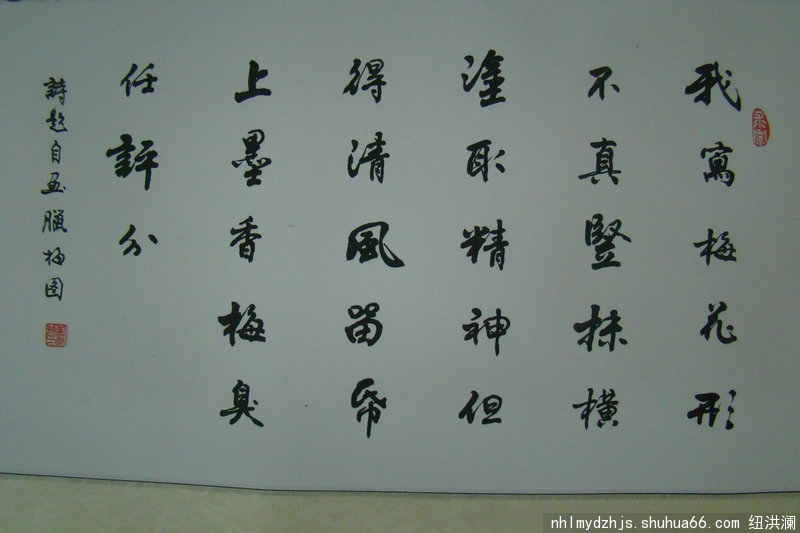 我寫梅花形
不真豎抹橫
塗取精神但
得清風留帋
上墨香梅臭
任評分
詩題自画臘梅图
nhlmydzhjs.shuhua66.com 纽洪澜